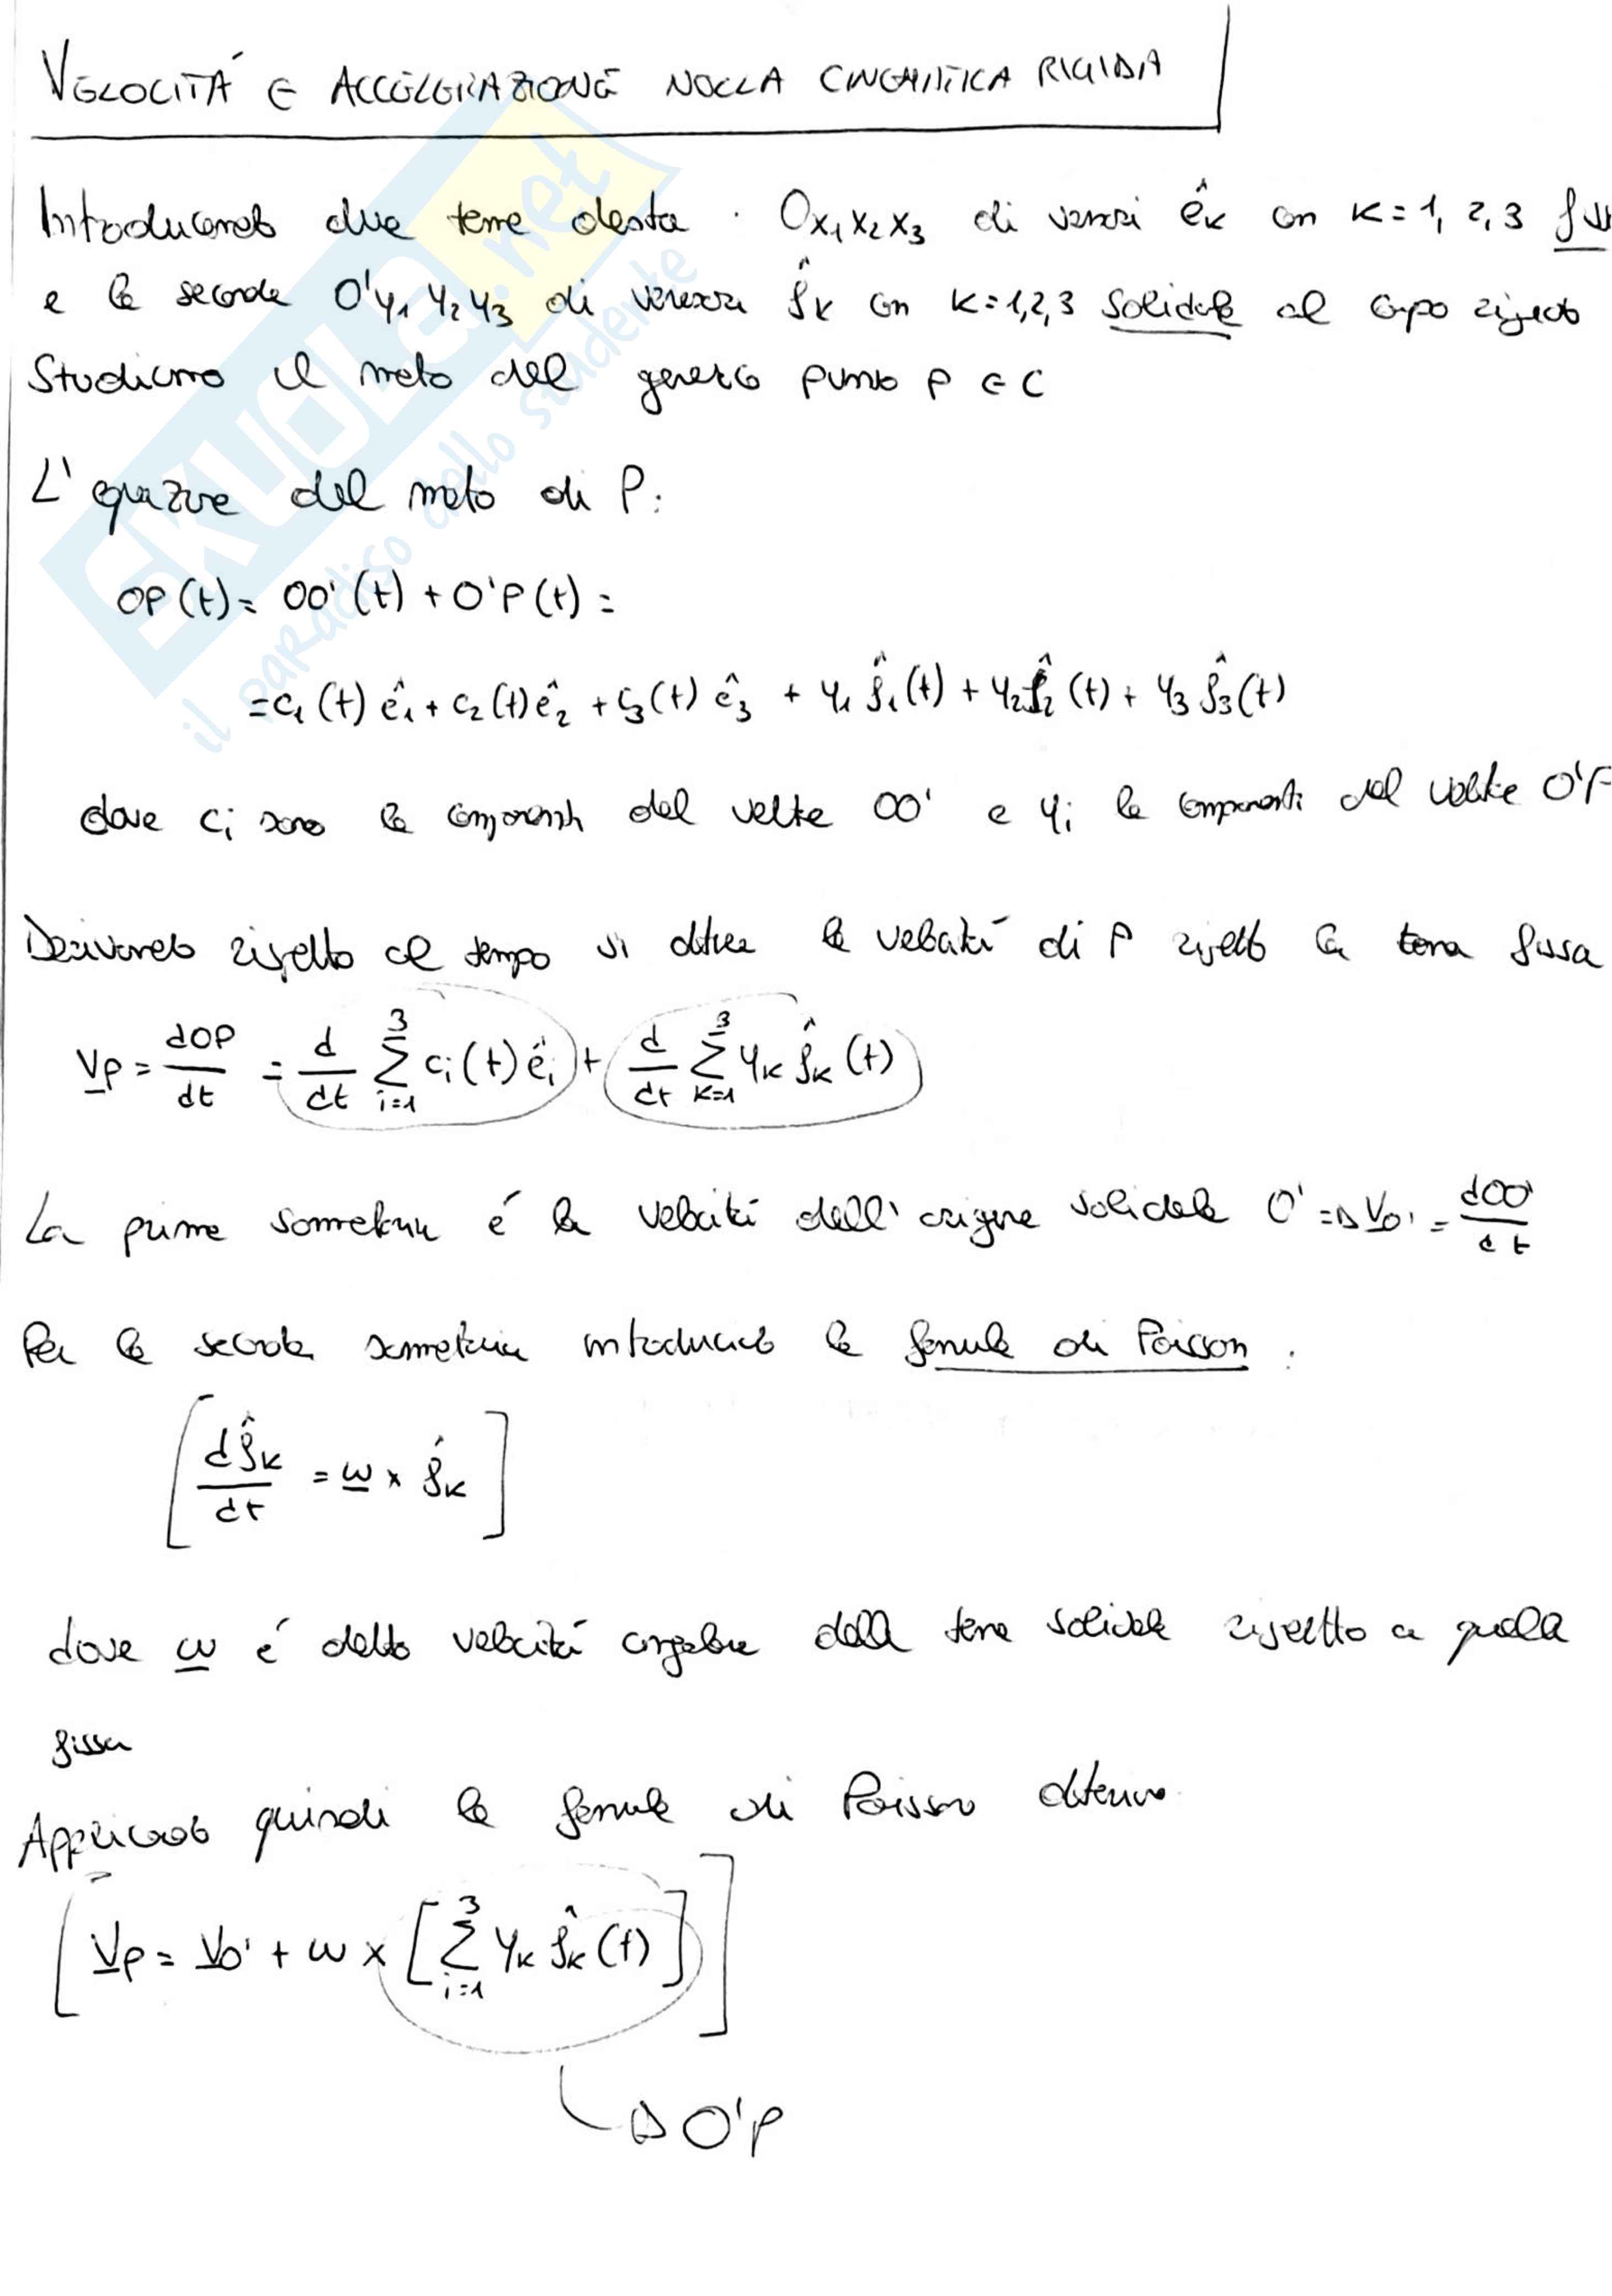 VELOCITÁ E ACCELERAZIONE NELLA CINEMATICA RIGIDA
Introducendo due terne destra . Ox₁x₂x₃ di versori êₖ con K=1, 2, 3
e la seconda O'y₁y₂y₃ di versori f̂ₖ con K=1,2,3 solidale al corpo rigido
Studiamo il moto del generico punto P ∈ C
L'equazione del moto di P:
OP(t) = OO'(t) + O'P(t) =
= c₁(t) ê₁ + c₂(t) ê₂ + c₃(t) ê₃ + y₁ f̂₁(t) + y₂ f̂₂(t) + y₃ f̂₃(t)
dove cᵢ sono le componenti del vettore OO' e yᵢ le componenti del vettore O'P
Derivando rispetto al tempo si ottiene la velocitá di P rispetto la terna fissa
V_P = dOP/dt = d/dt Σ_{i=1}^{3} cᵢ(t) êᵢ + d/dt Σ_{K=1}^{3} yₖ f̂ₖ(t)
La prima sommatoria é la velocitá dell'origine solidale O' => V_O' = dOO'/dt
Per la seconda sommatoria introducendo la formula di Poisson :
[ df̂ₖ/dt = ω × f̂ₖ ]
dove ω é detto velocitá angolare della terna solidale rispetto a quella
fissa
Applicando quindi la formula di Poisson otteniamo
[ V_P = V_O' + ω × [ Σ_{i=1}^{3} yₖ f̂ₖ(t) ] ]
→ O'P
SKUOLA.net
il paradiso dello studente